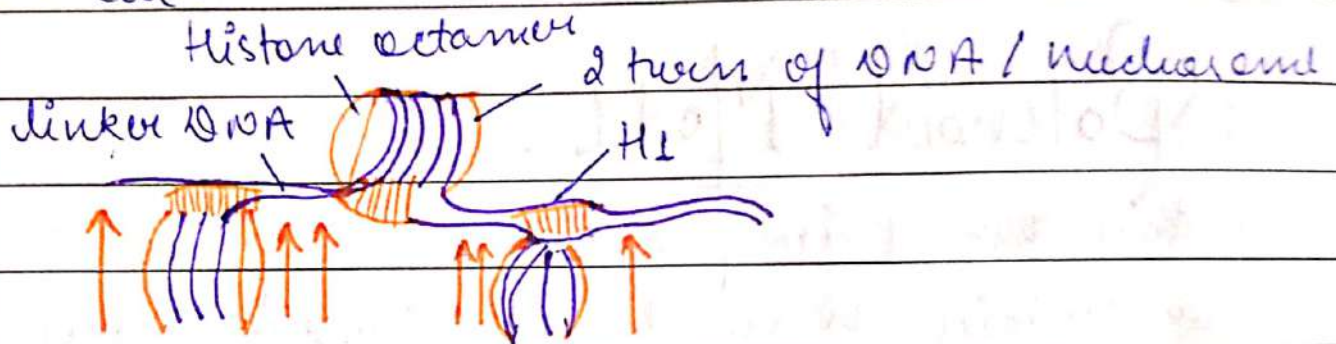 Histone octamer
2 turn of DNA / nucleosome
linker DNA
H1